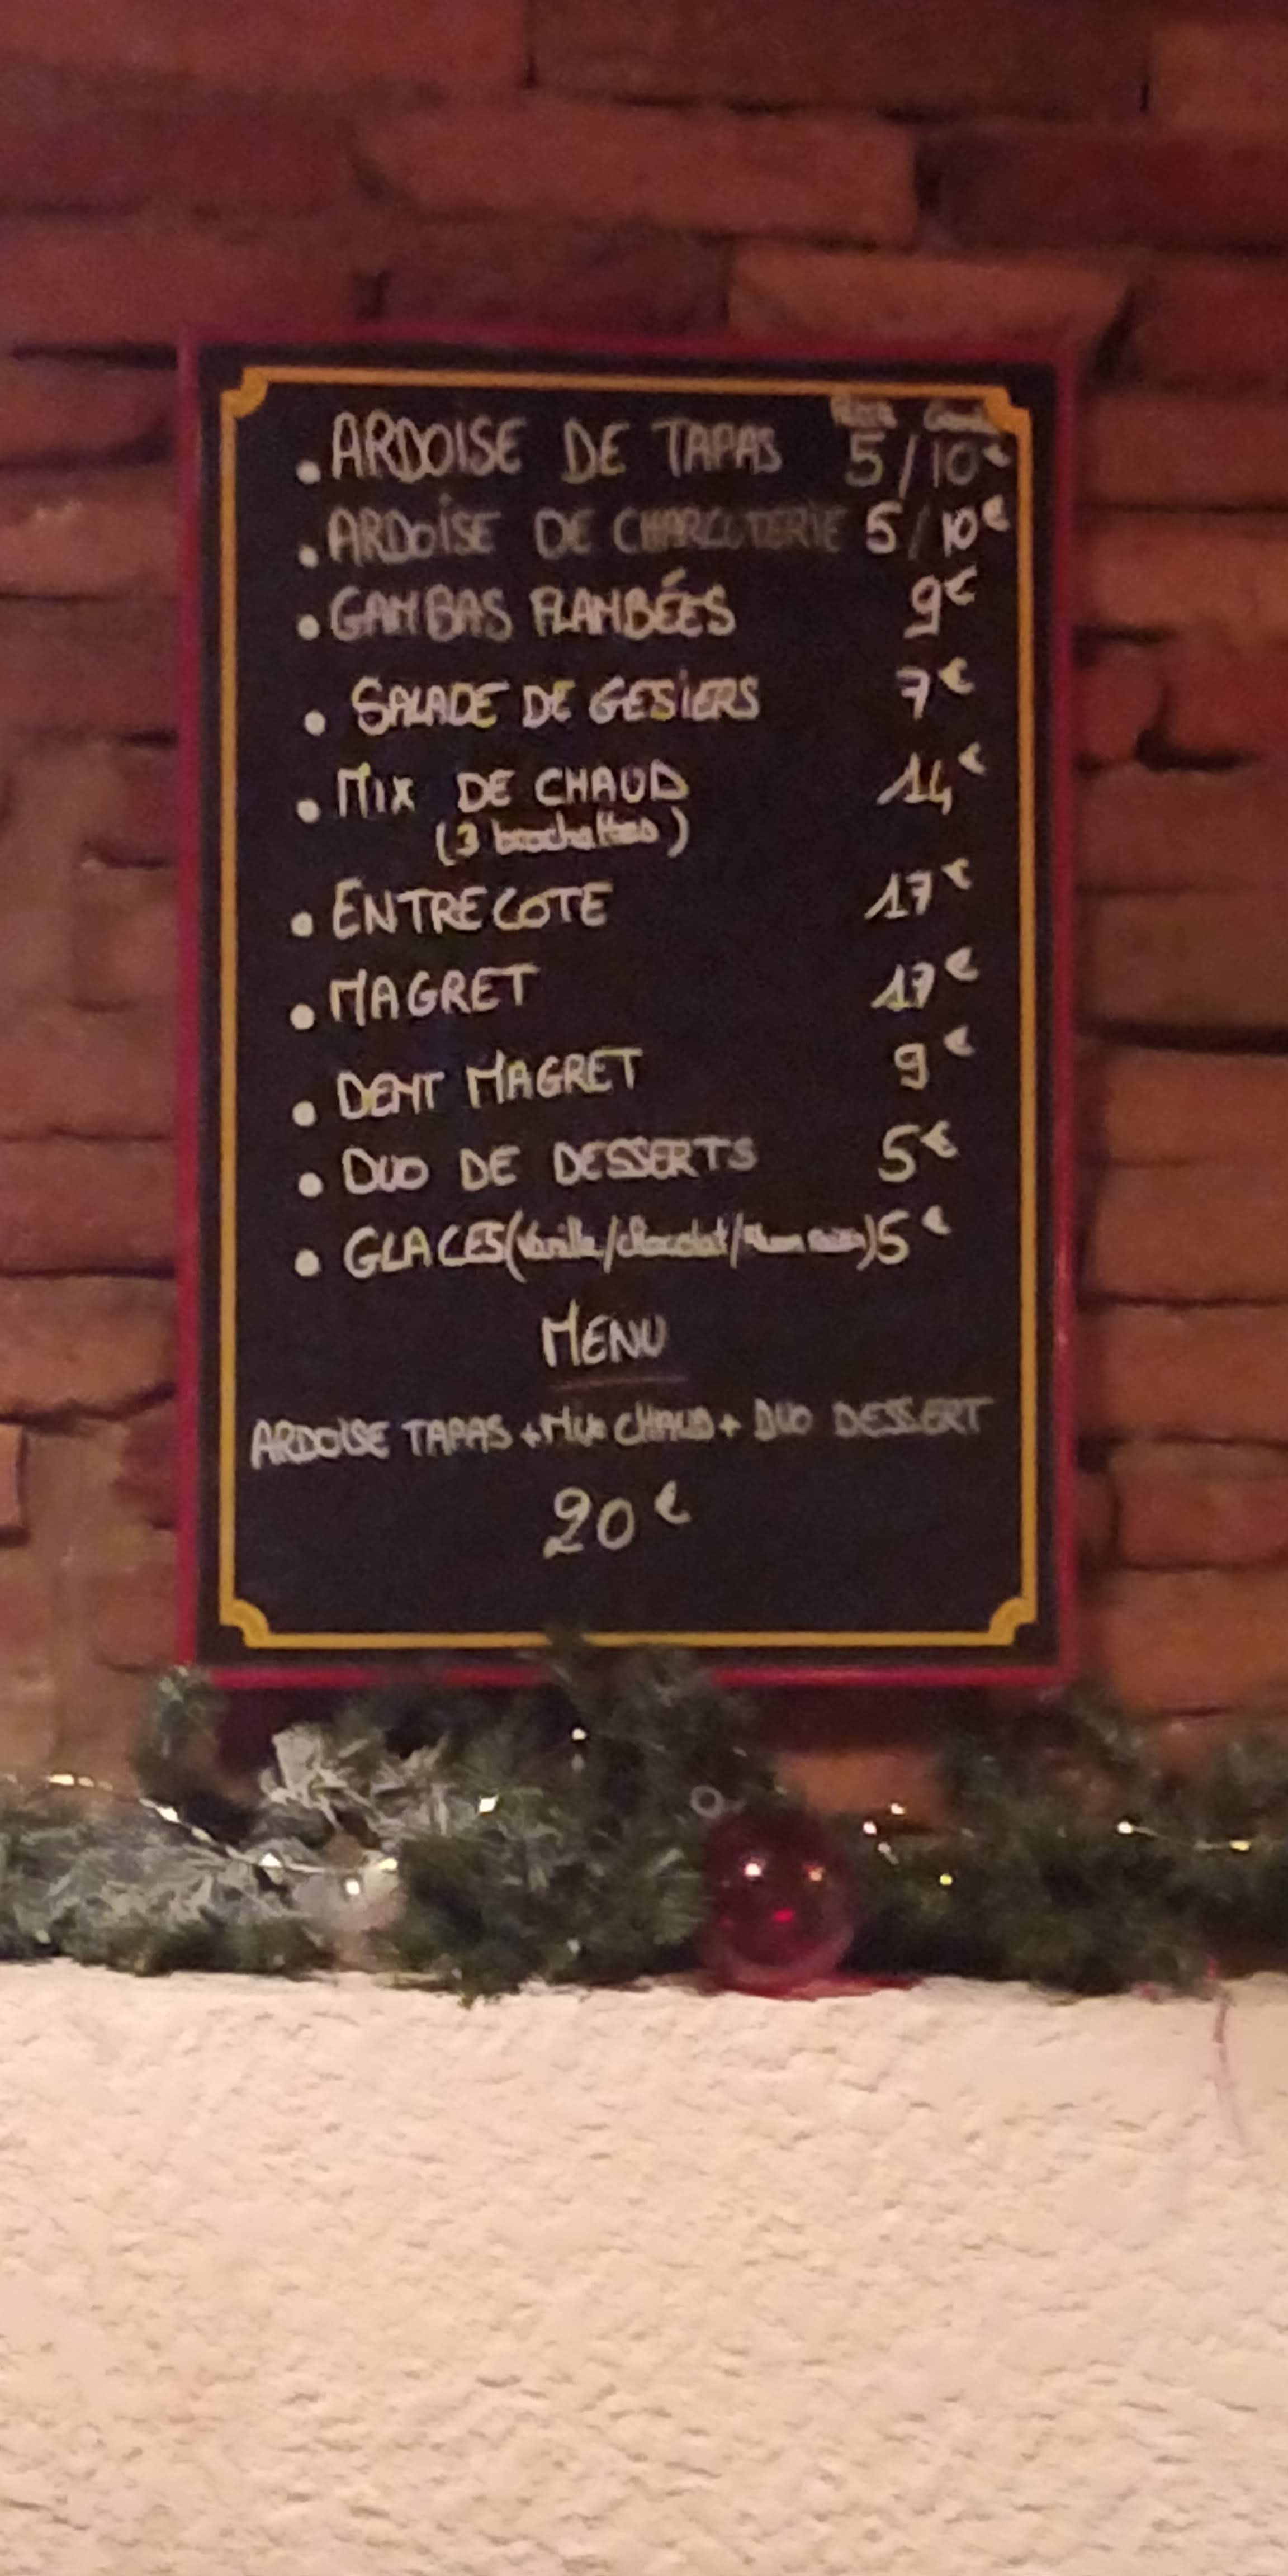 • ARDOISE DE TAPAS 5/10€
• ARDOISE DE CHARCUTERIE 5/10€
• GAMBAS FLAMBÉES 9€
• SALADE DE GESIERS 7€
• MIX DE CHAUD 14€
(3 brochettes)
• ENTRECOTE 17€
• MAGRET 17€
• DEMI MAGRET 9€
• DUO DE DESSERTS 5€
• GLACES (Vanille/chocolat/Rhum raisin) 5€
MENU
ARDOISE TAPAS + MIX CHAUD + DUO DESSERT
20€